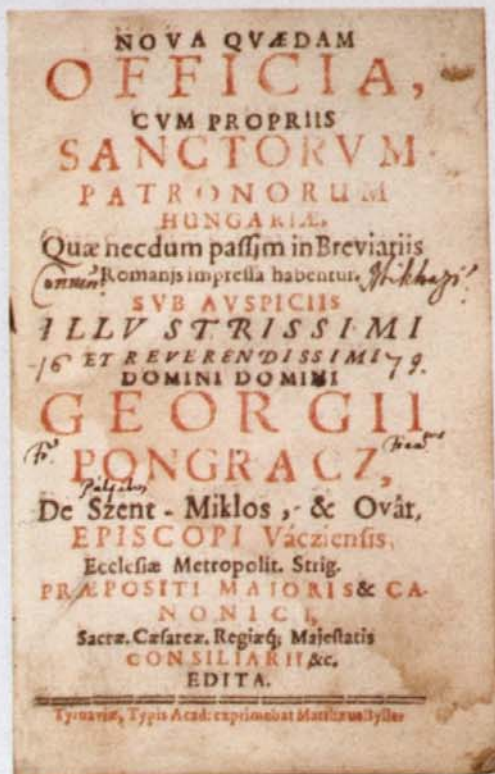 NOVA QVÆDAM
OFFICIA,
CVM PROPRIIS
SANCTORVM
PATRONORUM
HUNGARIÆ,
Quæ necdum paſſim in Breviariis
Romanis impreſſa habentur.
SVB AVSPICIIS
ILLVSTRISSIMI
16 ET REVERENDISSIMI 79.
DOMINI DOMINI
GEORGII
PONGRACZ,
De Szent - Miklos, & Ovár,
EPISCOPI Vácziensis,
Ecclesiæ Metropolit. Strig.
PRÆPOSITI MAIORIS & CA-
NONICI,
Sacræ. Cæsareæ. Regiæq́; Majestatis
CONSILIARII &c.
EDITA.
Tyrnaviæ, Typis Acad: exprimebat Matthæus Byller